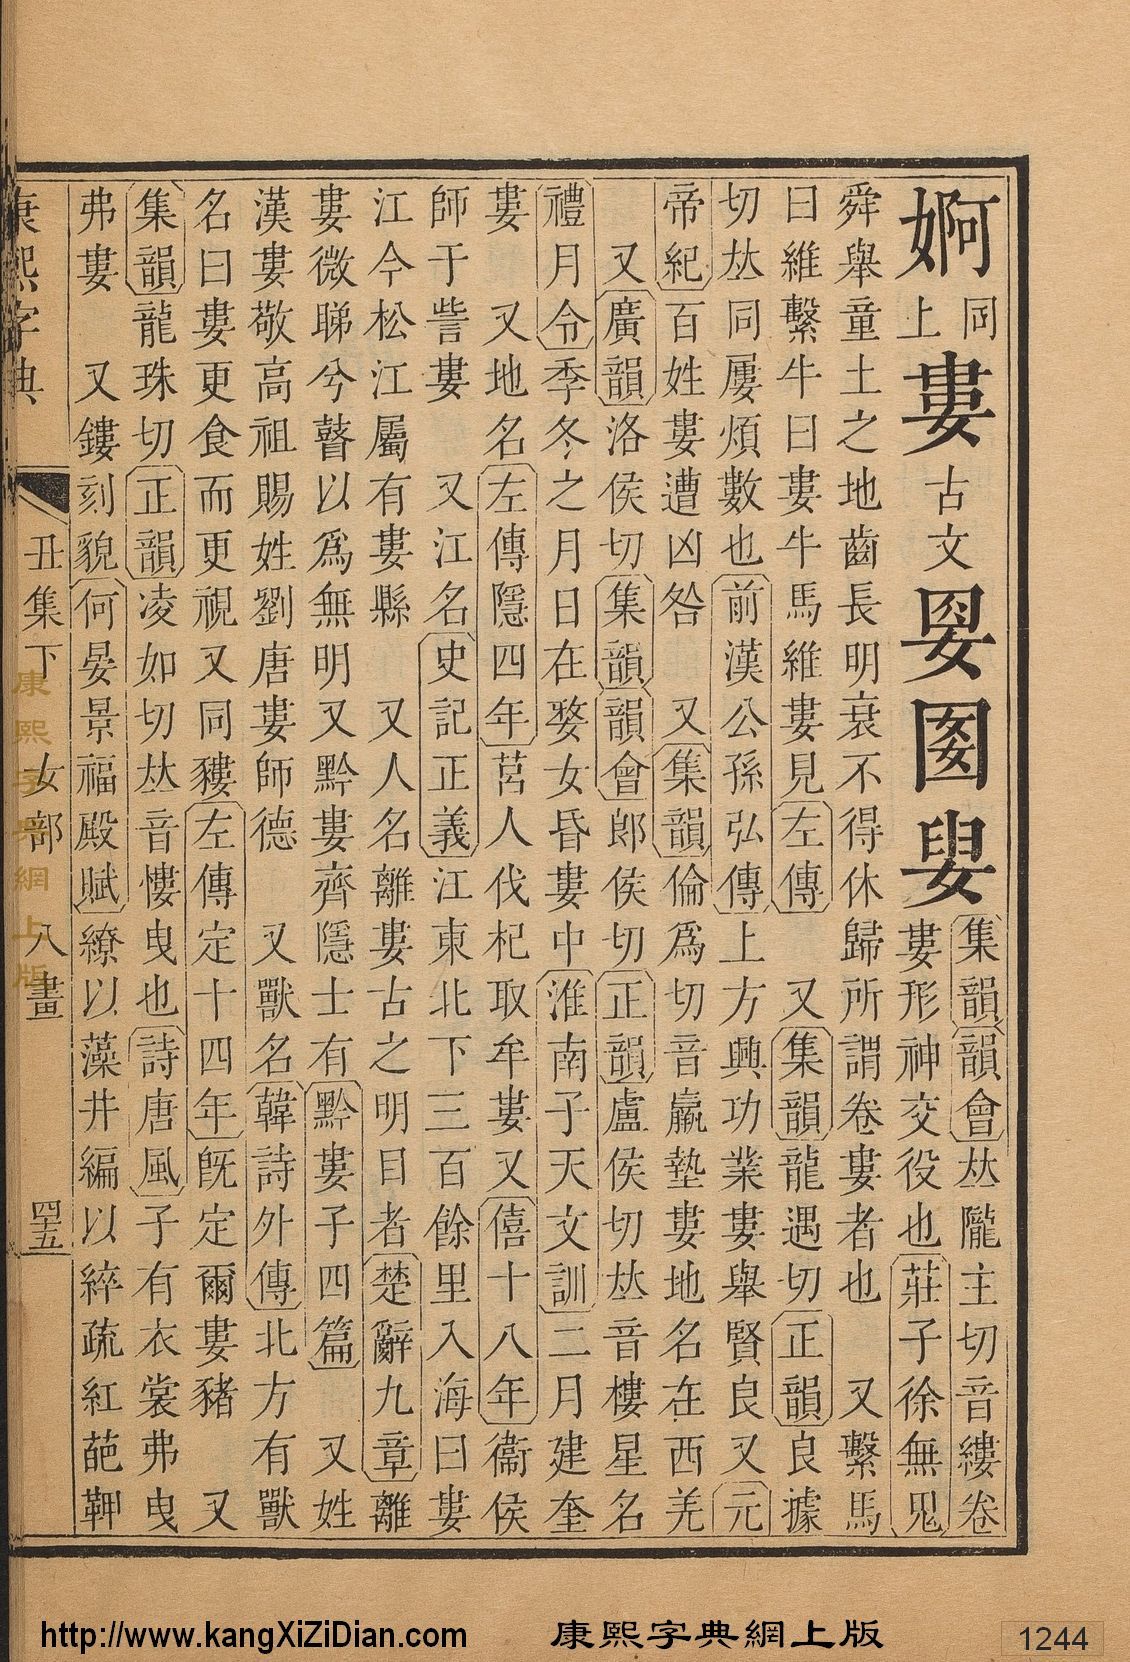 婀 同上 婁 古文 𡝤 𡇻 㛰
集韻韻會𠀤隴主切音縷卷
婁形神交役也莊子徐無鬼
舜舉童土之地齒長明衰不得休歸所謂卷婁者也 又繫馬
曰維繫牛曰婁牛馬維婁見左傳 又集韻龍遇切正韻良據
切𠀤同屢煩數也前漢公孫弘傳上方興功業婁舉賢良又元
帝紀百姓婁遭凶咎 又集韻倫爲切音羸墊婁地名在西羌
又廣韻洛侯切集韻韻會郎侯切正韻盧侯切𠀤音樓星名
禮月令季冬之月日在婺女昏婁中淮南子天文訓二月建奎
婁 又地名左傳隱四年莒人伐杞取牟婁又僖十八年衞侯
師于訾婁 又江名史記正義江東北下三百餘里入海曰婁
江今松江屬有婁縣 又人名離婁古之明目者楚辭九章離
婁微睇兮瞽以爲無明又黔婁齊隱士有黔婁子四篇 又姓
漢婁敬高祖賜姓劉唐婁師德 又獸名韓詩外傳北方有獸
名曰婁更食而更視又同貗左傳定十四年旣定爾婁豬 又
集韻龍珠切正韻凌如切𠀤音慺曳也詩唐風子有衣裳弗曳
弗婁 又鏤刻貌何晏景福殿賦繚以藻井編以綷疏紅葩𩋙
康熙字典
丑集下 女部 八畫
四五
康熙字典網上版
http://www.kangXiZiDian.com 康熙字典網上版 1244